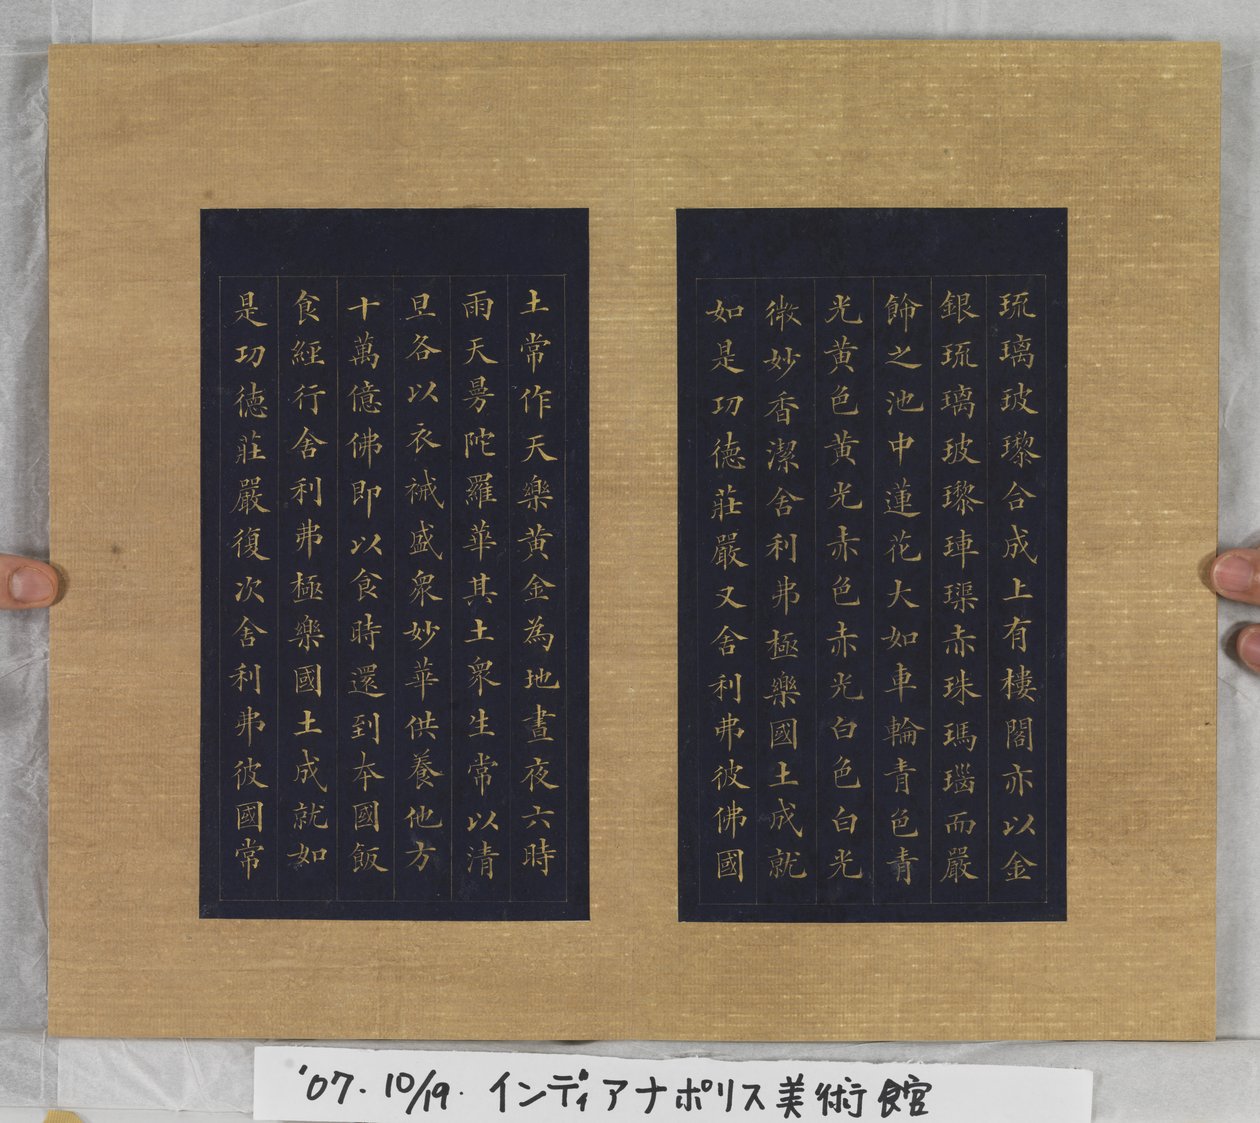 琉璃玻瓈合成上有樓閣亦以金
銀琉璃玻瓈硨璖赤珠瑪瑙而嚴
飾之池中蓮花大如車輪青色青
光黄色黄光赤色赤光白色白光
微妙香潔舍利弗極樂國土成就
如是功德莊嚴又舍利弗彼佛國
土常作天樂黄金為地晝夜六時
雨天曼陀羅華其土眾生常以清
旦各以衣裓盛眾妙華供養他方
十萬億佛即以食時還到本國飯
食經行舍利弗極樂國土成就如
是功德莊嚴復次舍利弗彼國常
'07.10/19.インディアナポリス美術館